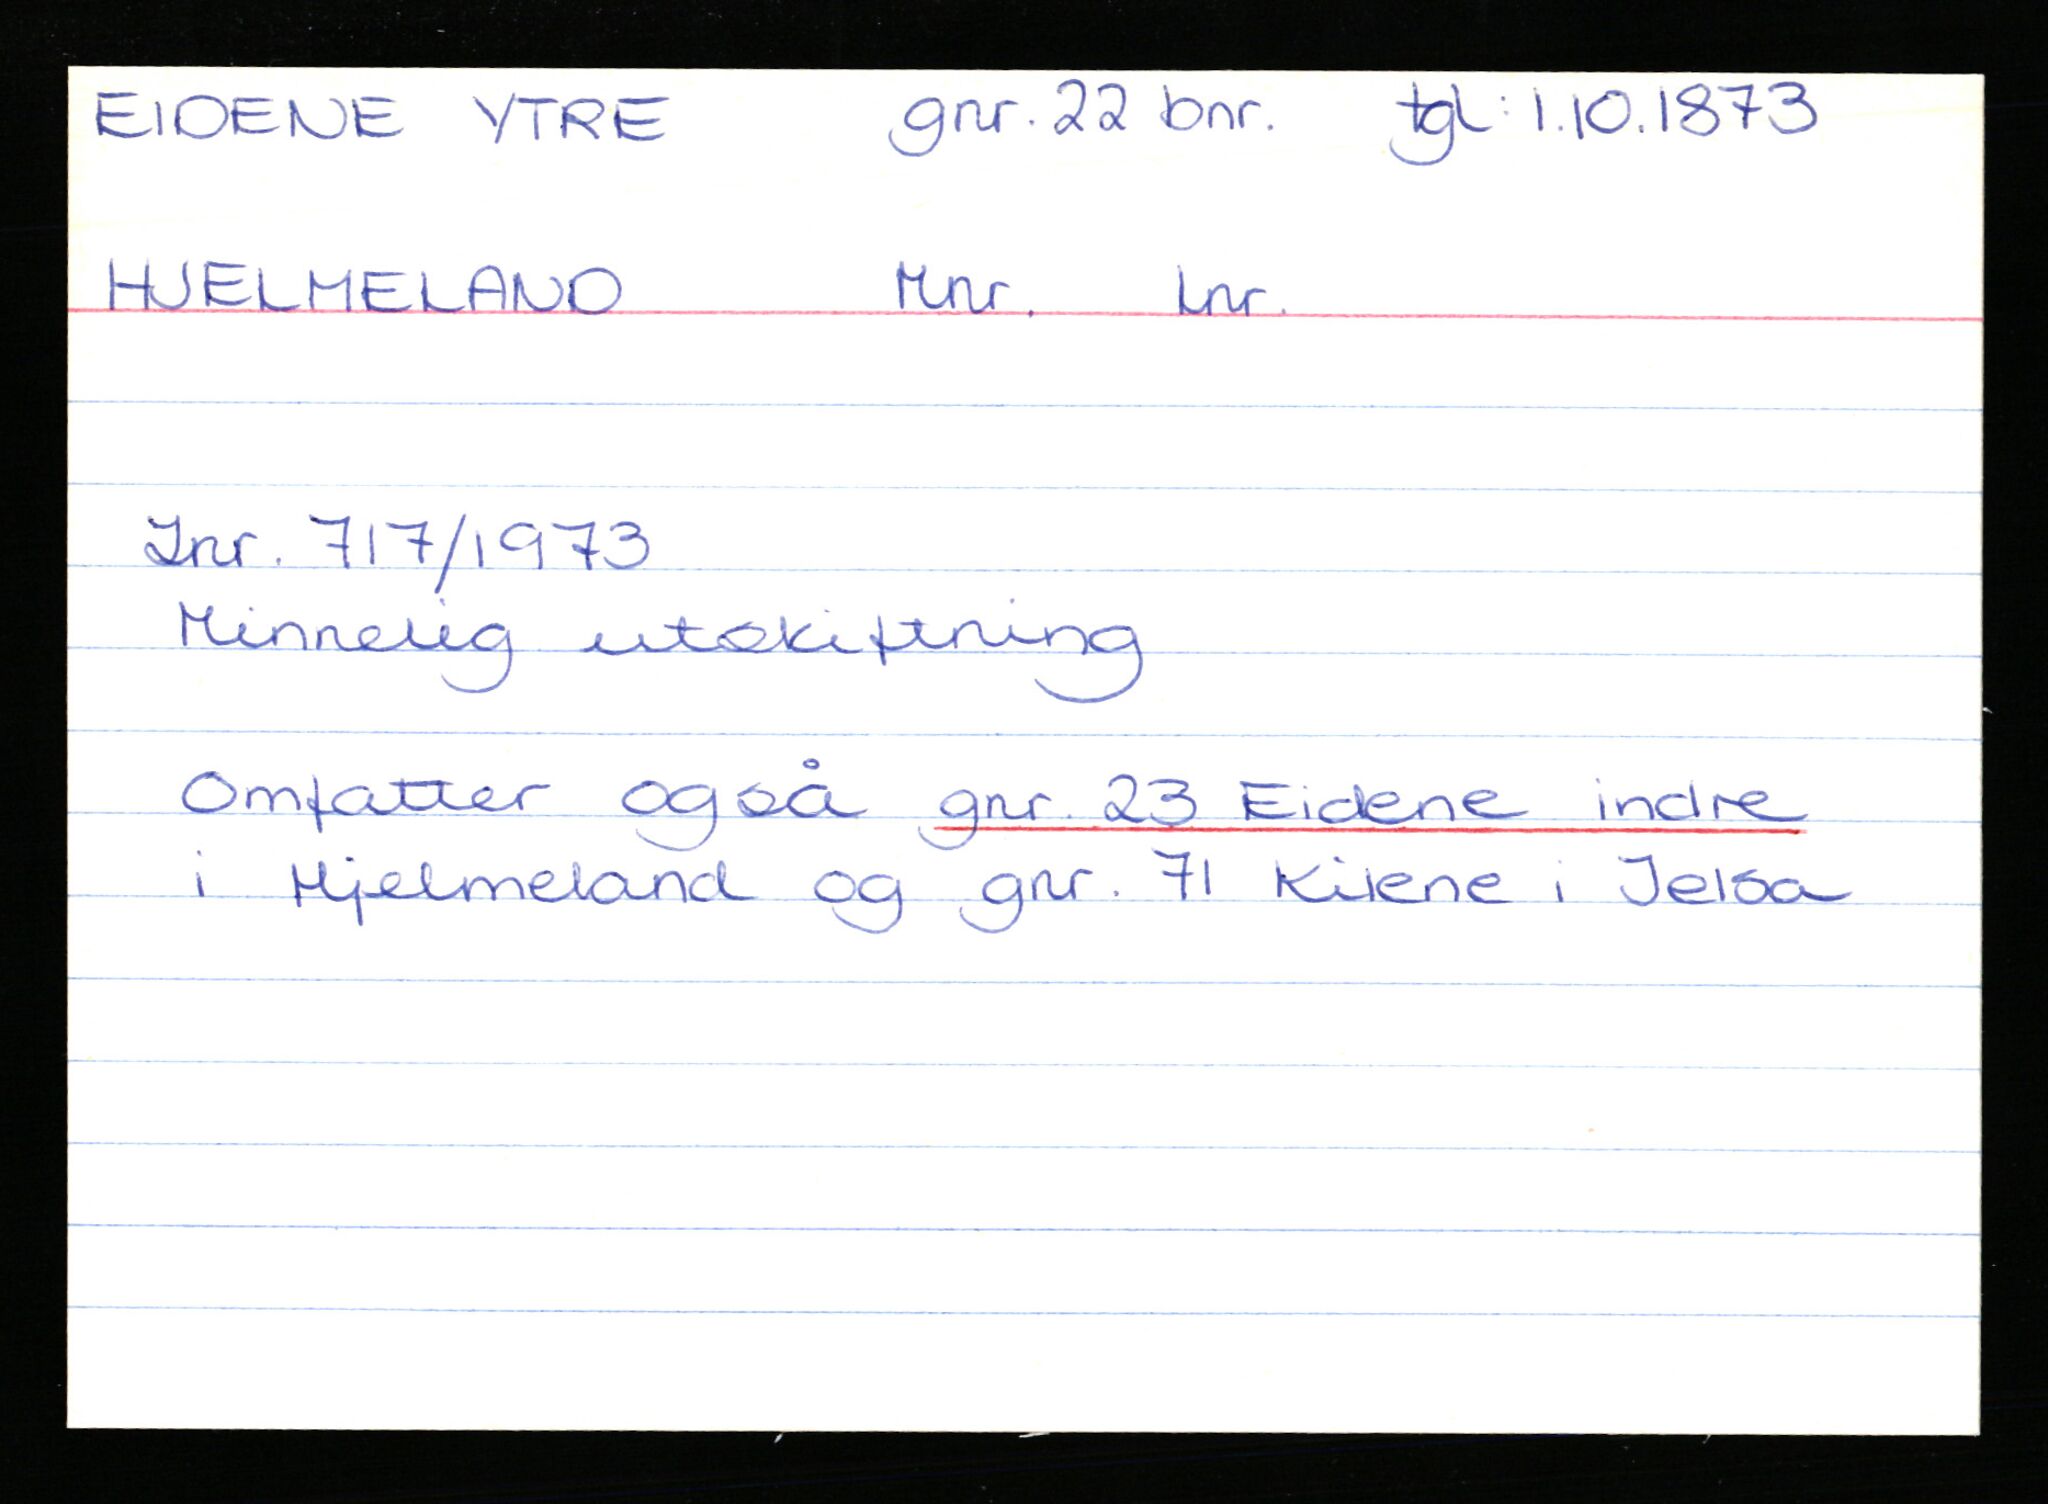 EIDENE YTRE gnr. 22 bnr. tgl: 1.10.1873
HJELMELAND Mnr. Lnr.
Jnr. 717/1973
Minnelig utskiftning
Omfatter også gnr. 23 Eidene indre
i Hjelmeland og gnr. 71 Kilene i Jelsa